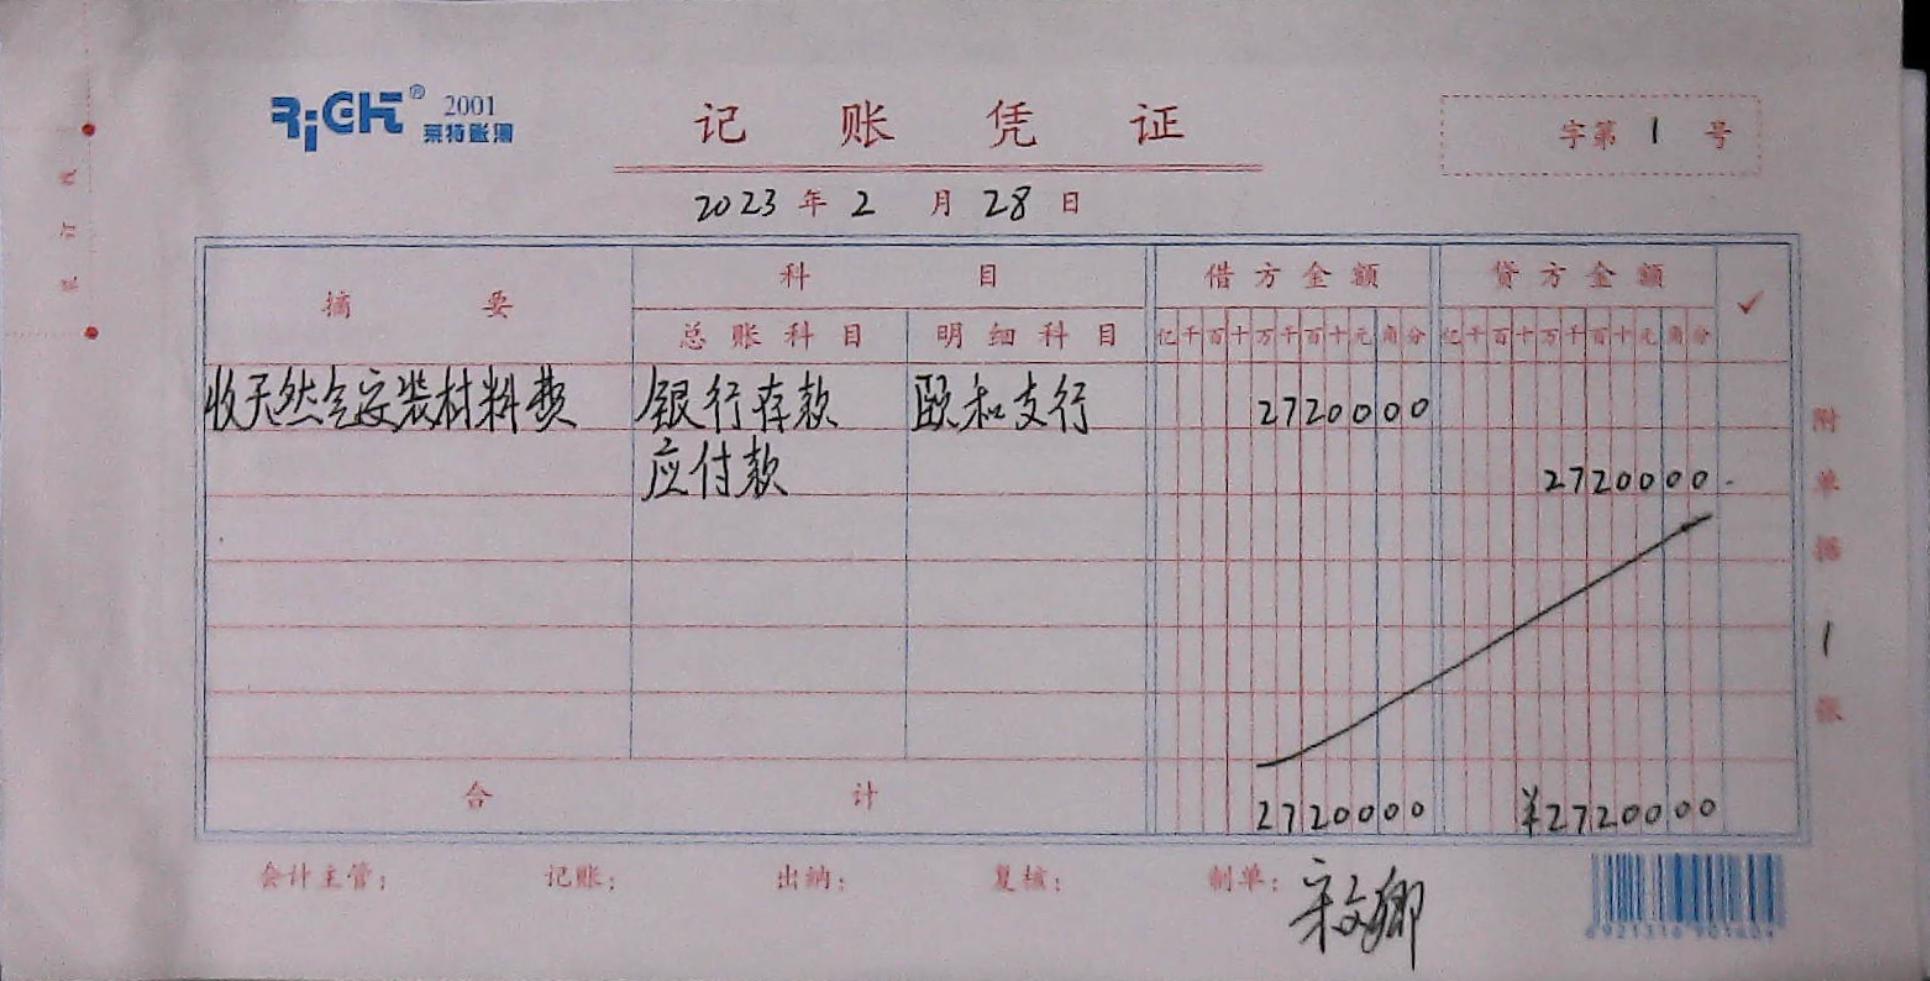 RiCH® 2001
莱特账簿
记账凭证
字第 1 号
2023 年 2 月 28 日
摘要 科目 借方金额 贷方金额 ✓
总账科目 明细科目 亿千百十万千百十元角分 亿千百十万千百十元角分
收天然气安装材料费 银行存款 颐和支行 2720000
应付款 2720000
合计 2720000 ¥2720000
会计主管: 记账: 出纳: 复核: 制单: 宋文卿
附单据 1 张
装订线